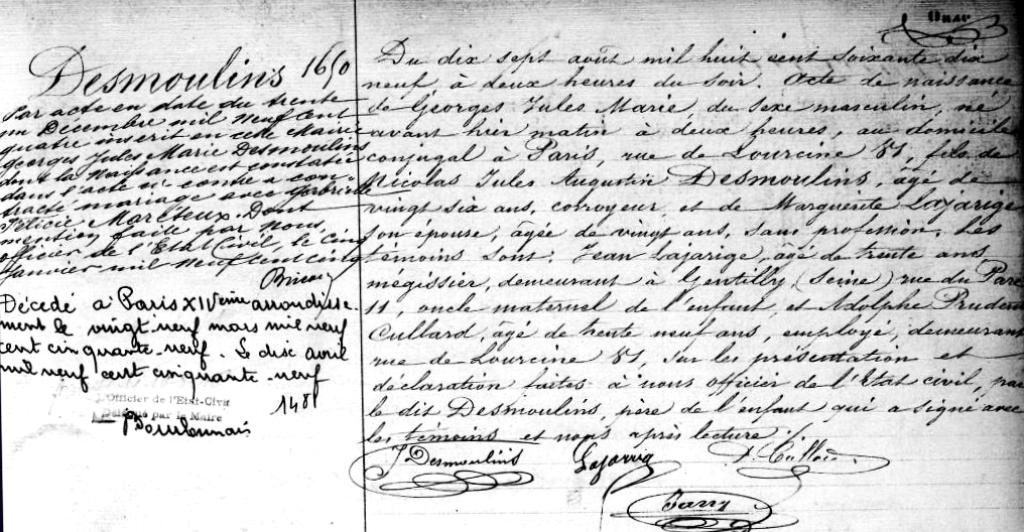 Desmoulins 1650
Par acte en date du trente
un Décembre mil neuf cent
quatre inscrit en cette Mairie
Georges Jules Marie Desmoulins
dont la Naissance est constatée
dans l'acte ci contre a con-
tracté mariage avec Gabrielle
Félicie Marcteux. Dont
mention faite par nous,
officier de l'Etat Civil, le cinq
Janvier mil neuf cent cinq
Décédé à Paris XIVeme arrondisse-
ment le vingt neuf mars mil neuf
cent cinquante-neuf. Le dix avril
mil neuf cent cinquante-neuf
L'Officier de l'Etat-Civil
Délégué par le Maire
Du dix sept août mil huit cent soixante dix
neuf, à deux heures du soir. Acte de naissance
de Georges Jules Marie, du sexe masculin, né
avant hier matin à deux heures, au domicile
conjugal à Paris, rue de Lourcine 51, fils de
Nicolas Jules Augustin Desmoulins, âgé de
vingt six ans, corroyeur, et de Marguerite Lajarige
son épouse, âgée de vingt ans, sans profession. Les
témoins sont: Jean Lajarige, âgé de trente ans,
mégissier, demeurant à Gentilly (Seine) rue du Parc
11, oncle maternel de l'enfant, et Adolphe Prudent
Cullard, âgé de trente neuf ans, employé, demeurant
rue de Lourcine 51, sur les présentation et
déclaration faites à nous officier de l'Etat civil, par
le dit Desmoulins, père de l'enfant qui a signé avec
les témoins et nous après lecture ./.
J Desmoulins